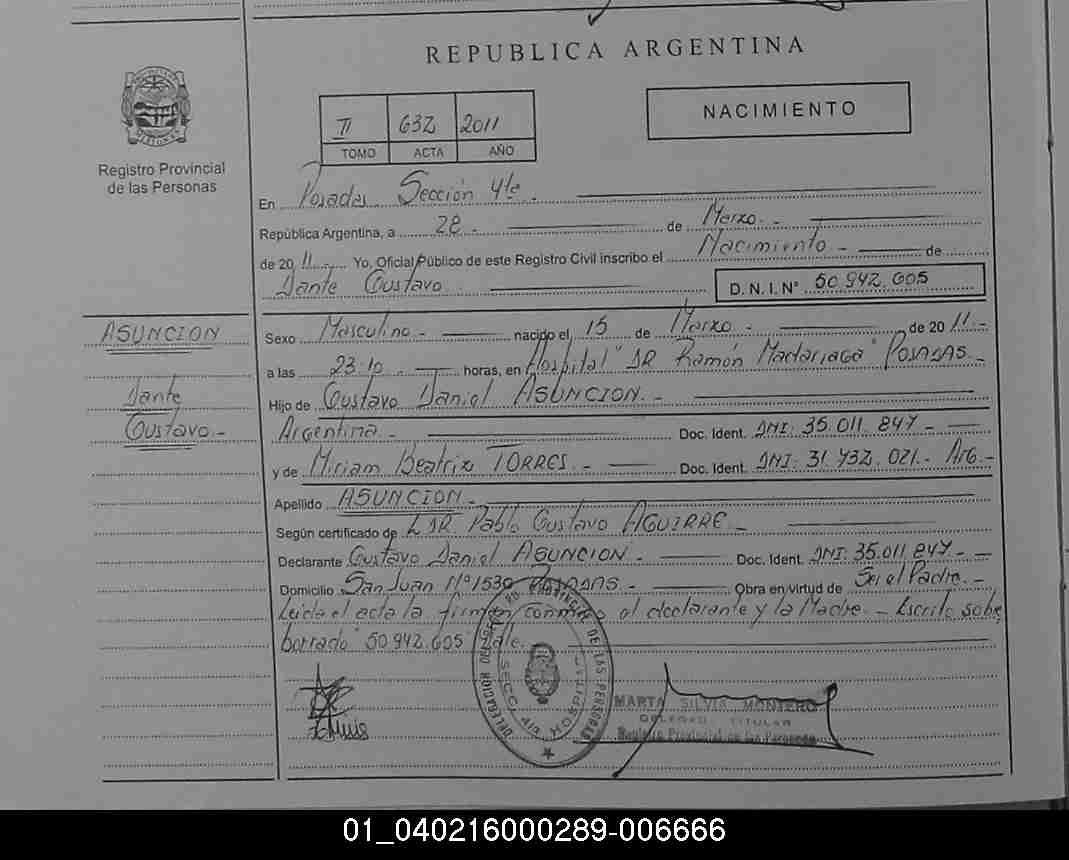 REPUBLICA ARGENTINA
Registro Provincial
de las Personas
II 632 2011
TOMO ACTA AÑO
NACIMIENTO
En Posadas. Sección 4ta.
República Argentina, a 28 - de Marzo.
de 2011.- Yo, Oficial Público de este Registro Civil inscribo el Nacimiento - de
Dante Gustavo D.N.I. N° 50.942.605
ASUNCION
Dante
Gustavo.-
Sexo Masculino.- nacido el 15 de Marzo - de 2011.-
a las 23:10 - horas, en Hospital "DR Ramón Madariaga" POSADAS.-
Hijo de Gustavo Daniel ASUNCION.-
Argentina.- Doc. Ident. DNI: 35.011.847 -
y de Miriam Beatriz TORRES.- Doc. Ident. DNI: 31.732.021.- Arg.-
Apellido ASUNCION.-
Según certificado de DR Pablo Gustavo AGUIRRE.-
Declarante Gustavo Daniel ASUNCION.- Doc. Ident. DNI: 35.011.847.-
Domicilio San Juan N° 1539 POSADAS.- Obra en virtud de Ser el Padre.-
Leida el acta la firman conmigo el declarante y la Madre.- Escrito sobre
borrado "50.942.605" Vale.
DELEGACION DEL REGISTRO PROVINCIAL DE LAS PERSONAS
SECC. 4ta. HOSPITAL
MARTA SILVIA MONTERO
DELEGADO TITULAR
Registro Provincial de las Personas
01_040216000289-006666